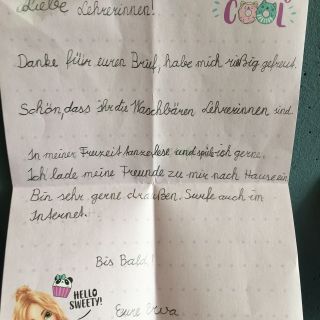 Liebe Lehrerinnen!
COOL
Danke füir euren Brief, habe mich rießig gefreut.
Schön, dass ihr die Waschbären Lehrerinnen sind.
In meiner Freizeit tanze lese und spiele ich gerne.
Ich lade meine Freunde zu mir nach Hause ein
Bin sehr gerne draußen. Surfe auch im
Internet.
Bis Bald!
HELLO
SWEETY!
Eure